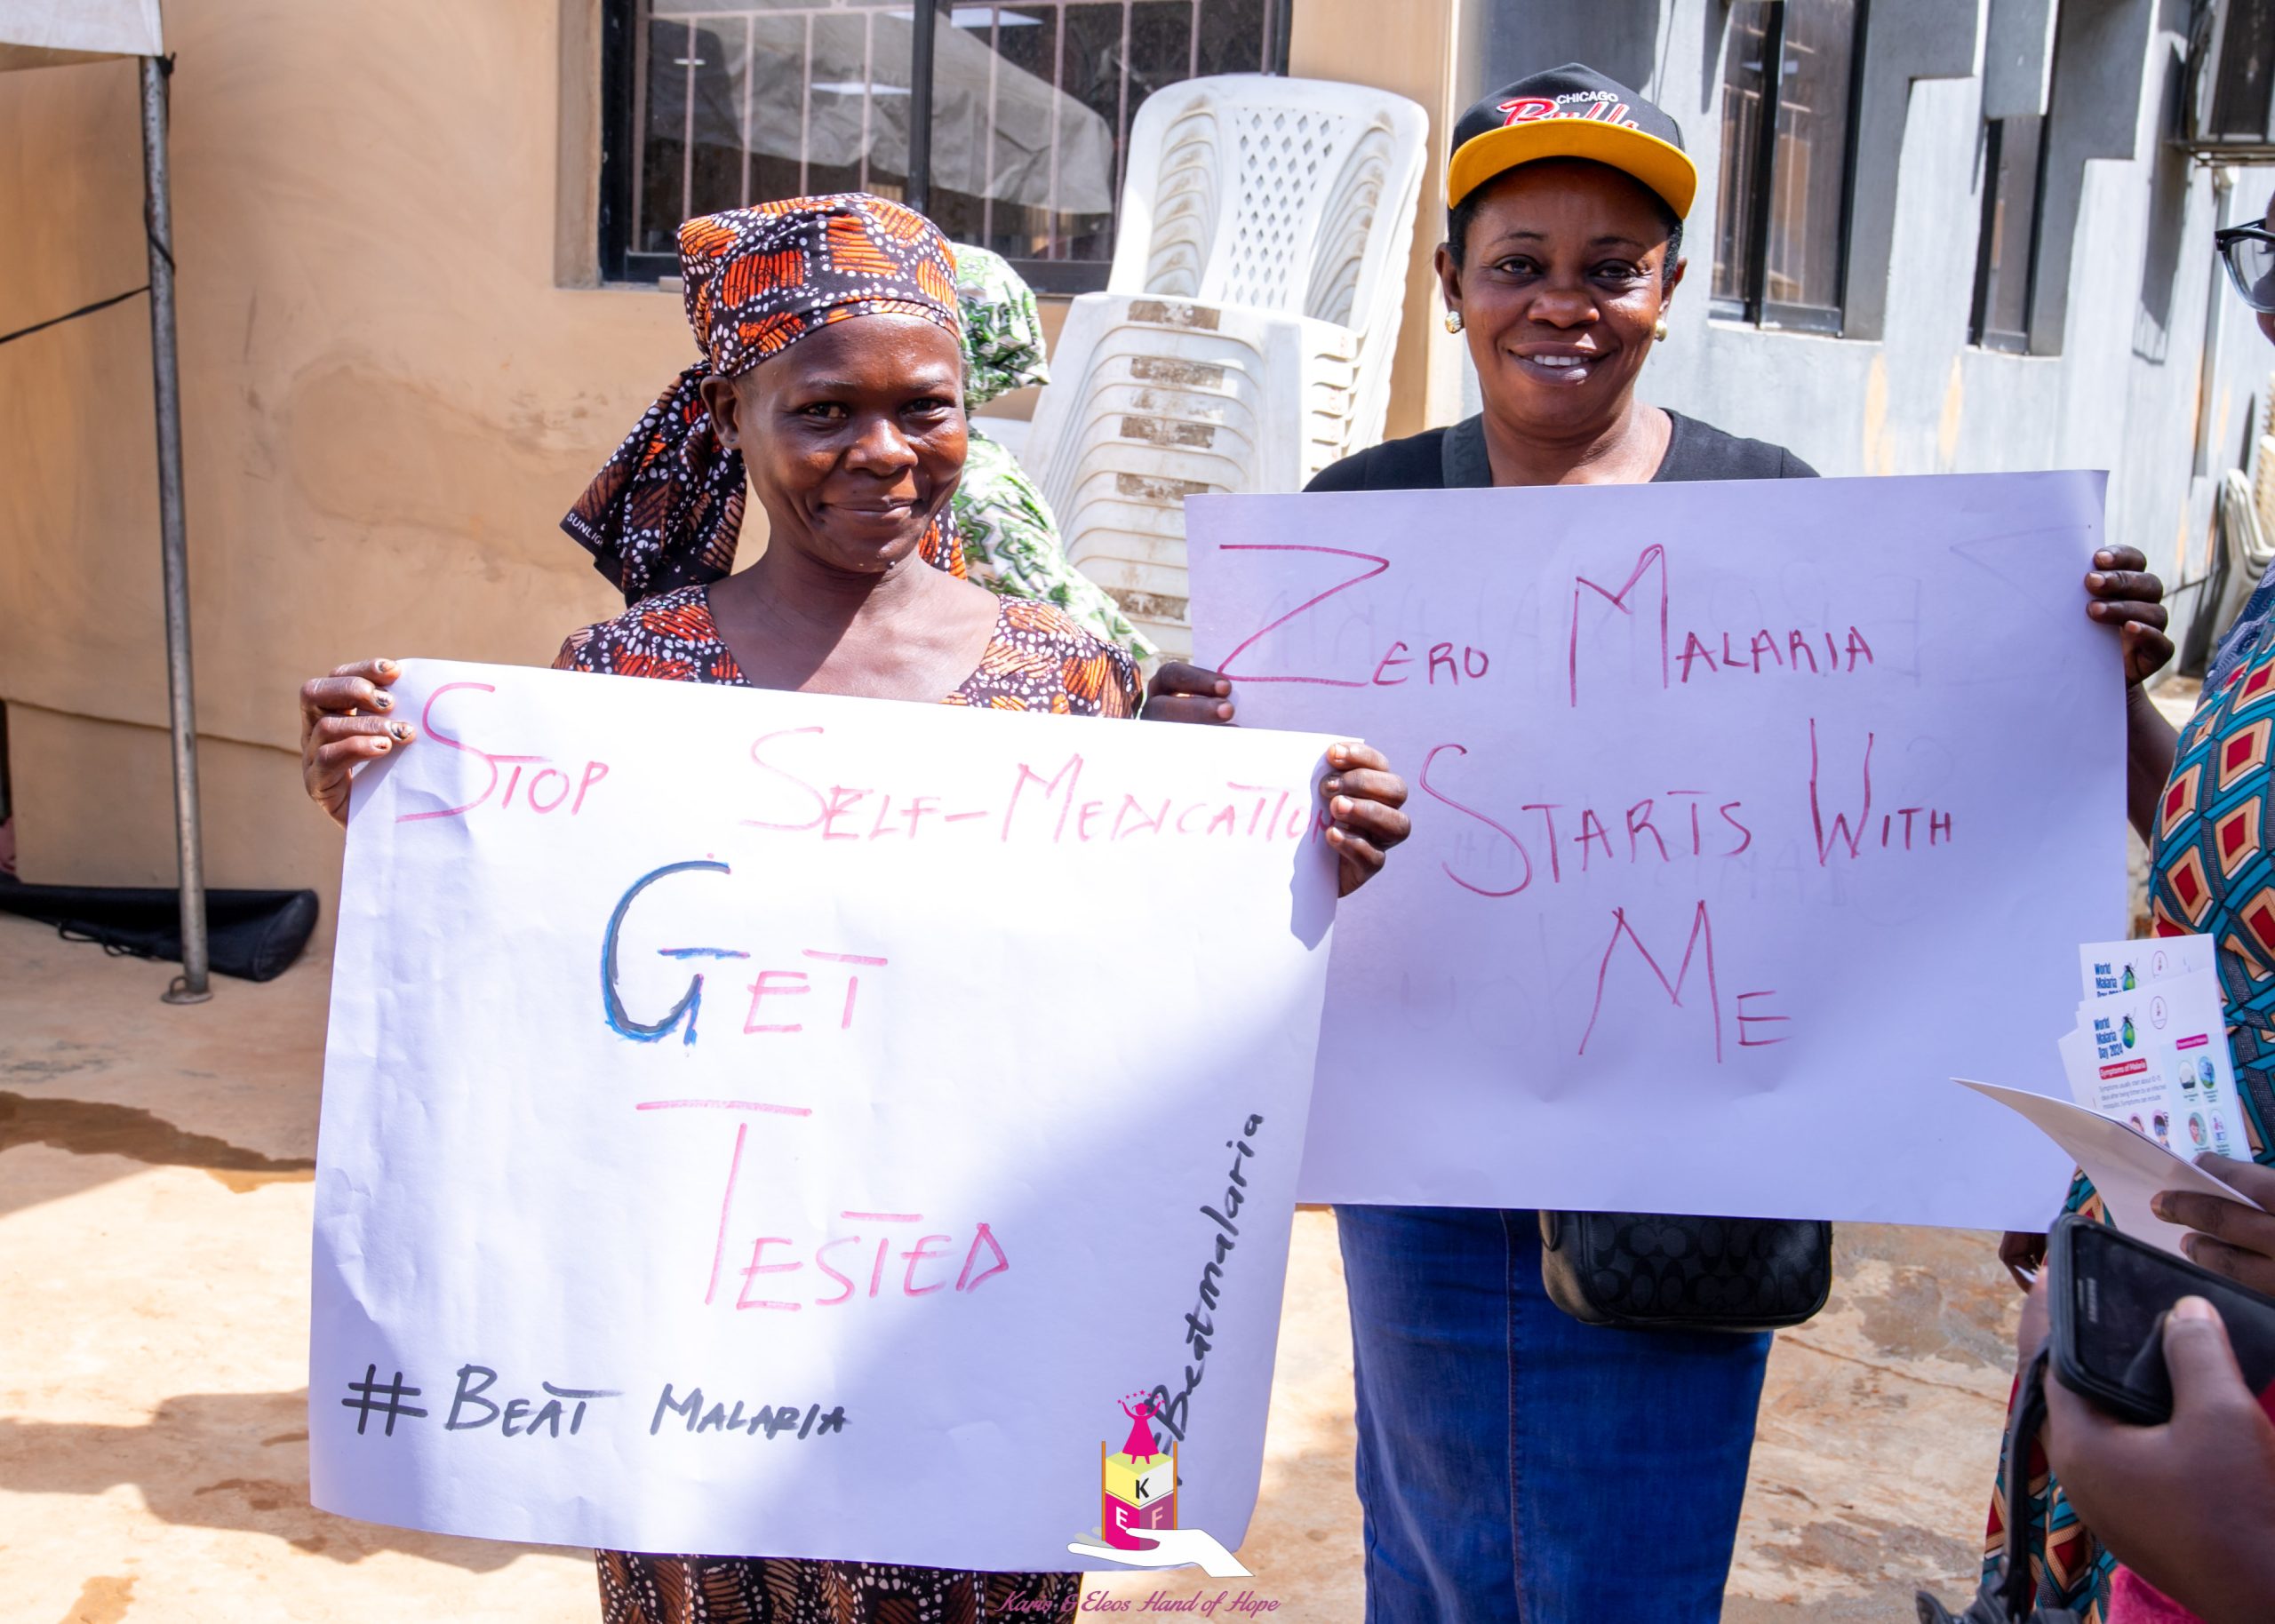 CHICAGO
Bulls
STOP SELF-MEDICATION
GET
TESTED
#BEAT MALARIA
#Beatmalaria
ZERO MALARIA
STARTS WITH
ME
World
Malaria
World
Malaria
Day 2024
Symptoms of Malaria
K
E F
Karis & Eleos Hand of Hope